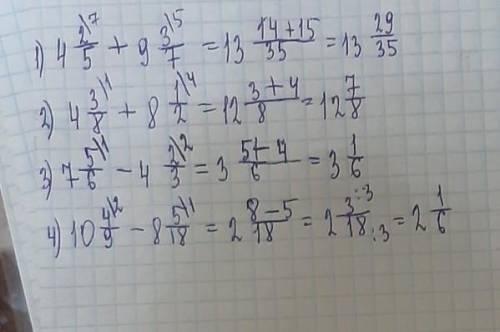 1) 4 2/5 \7 + 9 3/7 \5 = 13 (14+15)/35 = 13 29/35
2) 4 3/8 \1 + 8 1/2 \4 = 12 (3+4)/8 = 12 7/8
3) 7 5/6 \1 - 4 2/3 \2 = 3 (5-4)/6 = 3 1/6
4) 10 4/9 \2 - 8 5/18 \1 = 2 (8-5)/18 = 2 3:3/18:3 = 2 1/6